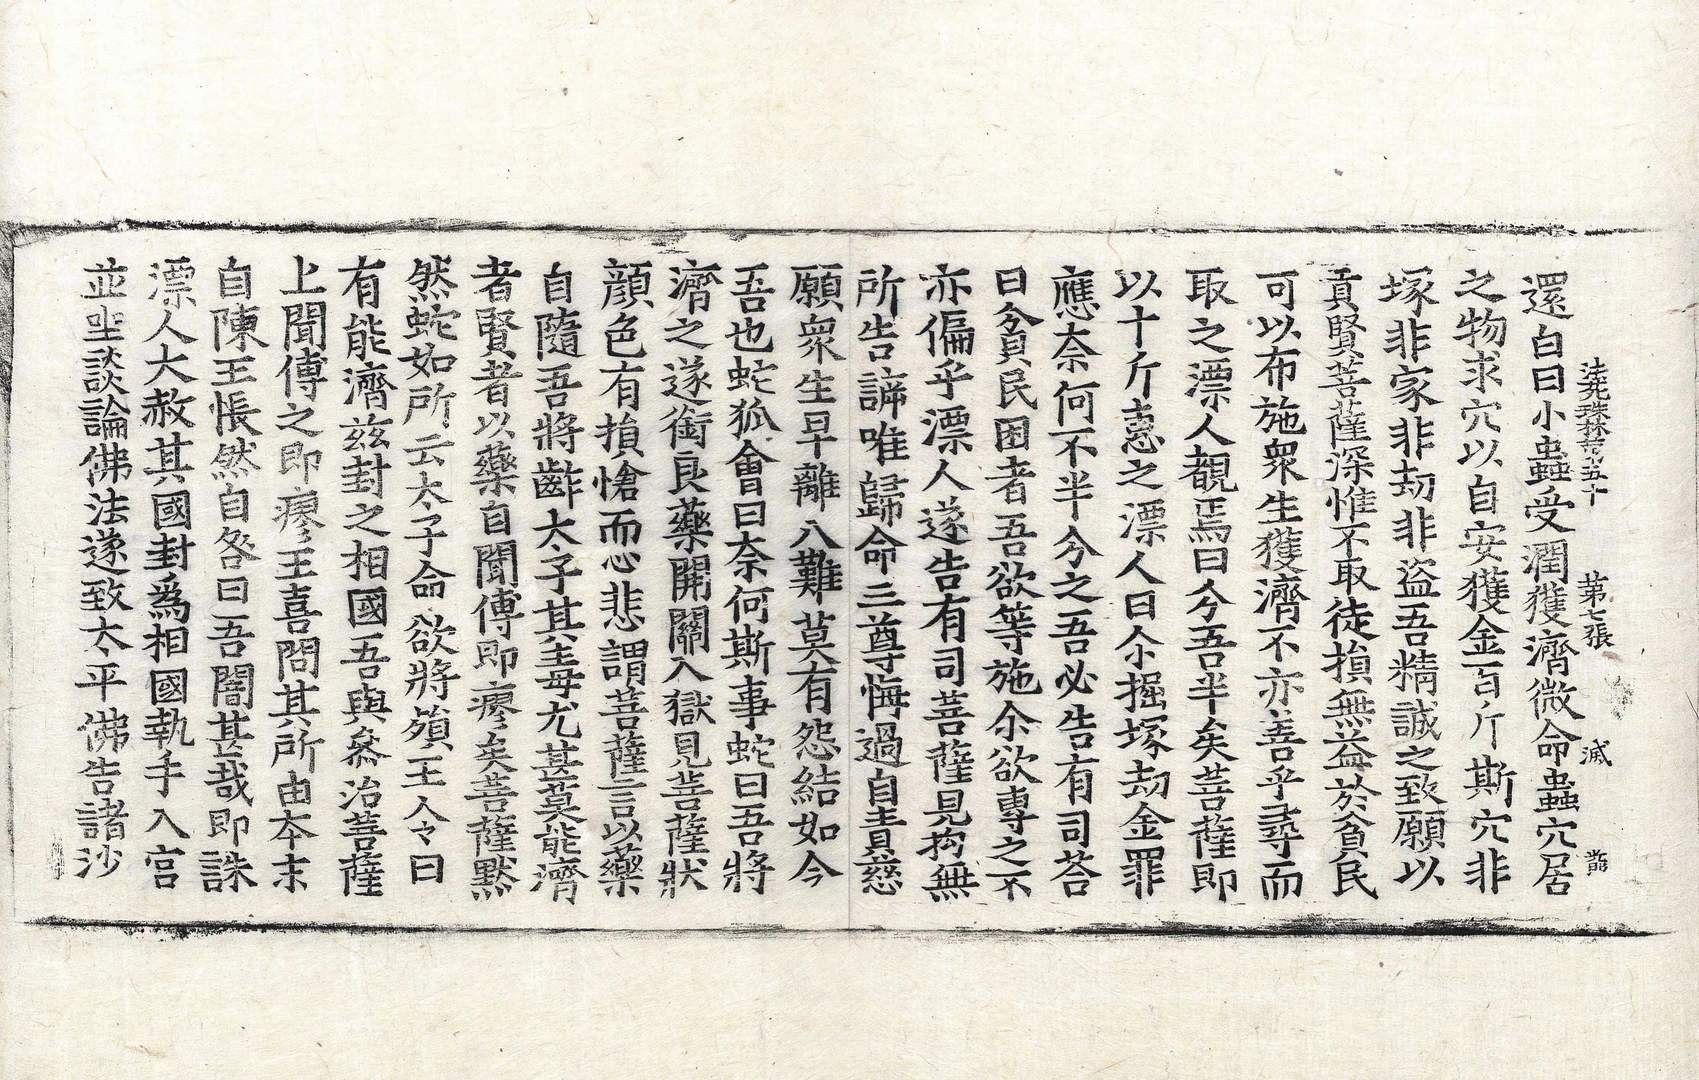 法苑珠林苐五十　苐七張　滅
還白曰小蟲受潤獲濟微命蟲穴居
之物求穴以自安獲金百斤斯穴非
塚非家非劫非盜吾精誠之致願以
貢賢菩薩深惟不取徒損無益於貧民
可以布施衆生獲濟不亦善乎尋而
取之漂人覩焉曰分吾半矣菩薩即
以十斤惠之漂人曰尒掘塚劫金罪
應奈何不半分之吾必告有司荅
曰貧民困者吾欲等施尒欲專之不
亦偏乎漂人遂告有司菩薩見拘無
所告諦唯歸命三尊悔過自責慈
願衆生早離八難莫有怨結如今
吾也蛇狐會曰奈何斯事蛇曰吾將
濟之遂銜良藥開關入獄見菩薩狀
顔色有損愴而心悲謂菩薩言以藥
自隨吾將齚太子其毒尤甚莫能濟
者賢者以藥自聞傅即瘳矣菩薩默
然蛇如所云太子命欲將殞王人令曰
有能濟兹封之相國吾與叅治菩薩
上聞傅之即瘳王喜問其所由夲末
自陳王悵然自咎曰吾闇甚哉即誅
漂人大赦其國封爲相國執手入宮
並坐談論佛法遂致太平佛告諸沙